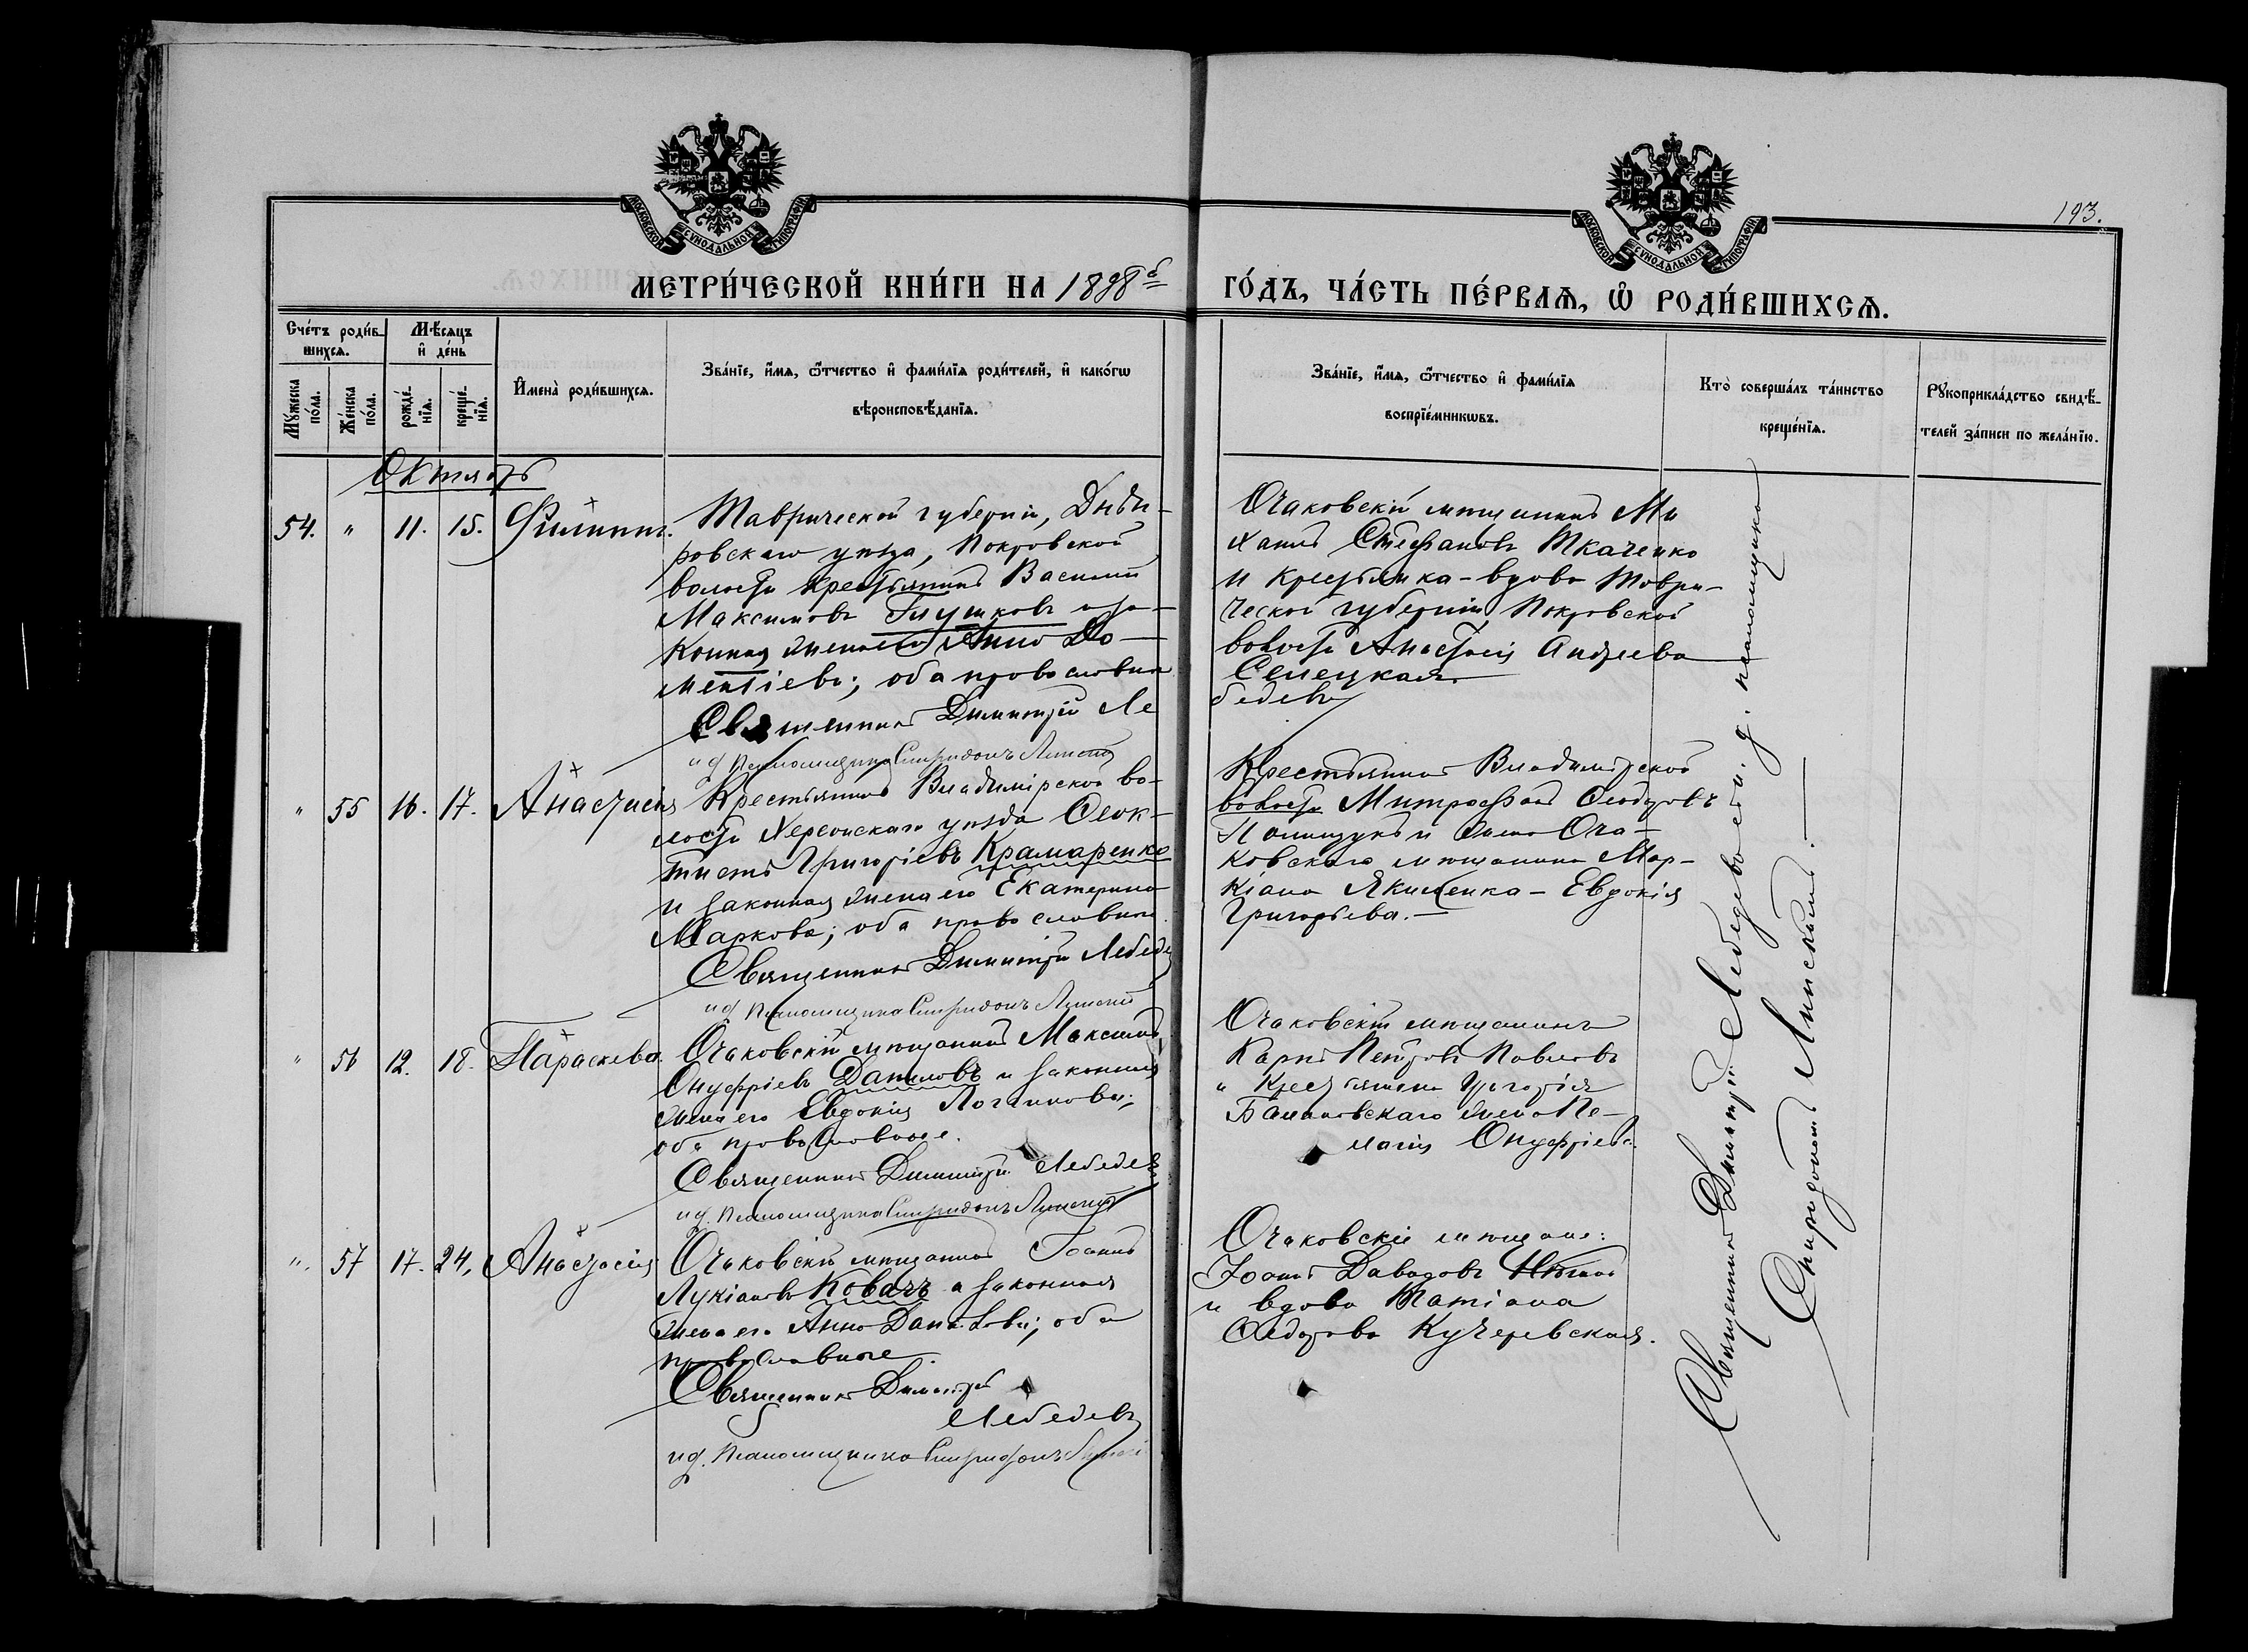 193.
МЕТРИ́ЧЕСКОЙ КНИ́ГИ НА 1898й
ГО́ДЪ, ЧА́СТЬ ПЕ́РВАѦ, Ѡ РОДИ́ВШИХСѦ.
Сче́тъ роди́в-
шихсѧ.
Мѣ́сѧцъ
и де́нь
Мꙋжеска
по́ла.
Же́нска
по́ла.
рожде́-
нїѧ.
креще́-
нїѧ.
Имена̀ роди́вшихсѧ.
Зва́нїе, и́мѧ, ѻ҆́тчество и фами́лїѧ роди́телей, и како́гѡ
вѣроисповѣ́данїѧ.
Зва́нїе, и́мѧ, ѻ҆́тчество и фами́лїѧ
воспрїе́мникѡвъ.
Кто̀ соверша́лъ та́инство
креще́нїѧ.
Рꙋкоприкла́дство свидѣ́-
телей за́писи по жела́нїю.
Октябрь
54. " 11. 15. Филиппъ.
Таврической губерніи, Днѣп-
ровскаго уѣзда, Покровской
волости крестьянинъ Василій
Максимовъ Глушковъ и за-
конная жена его Анна До-
ментіева; оба православные
Священникъ Димитрій Ле
бедевъ
и д псаломщика Спиридонъ Линскій
Очаковскій мѣщанинъ Ми
хаилъ Стефановъ Ткаченко
и крестьянка-вдова Таври-
ческой губерніи, Покровской
волости Анастасія Андреева
Селецкая.
" 55 16. 17. Анастасія
Крестьянинъ Владимірской во-
лости Херсонскаго уѣзда Феок-
тистъ Григоріевъ Крамаренко
и законная жена его Екатерина
Маркова; оба православные.
Священникъ Димитрій Лебедевъ
и д псаломщика Спиридонъ Линскій
Крестьянинъ Владимірской
волости Митрофанъ Феодоровъ
Полищукъ и жена Оча-
ковскаго мѣщанина Мар-
кіана Якименка - Евдокія
Григорьева.-
" 56 12. 18. Параскева.
Очаковскій мѣщанинъ Максимъ
Онуфріевъ Даниловъ и законная
жена его Евдокія Логинова;
оба православные.
Священникъ Димитрій Лебедевъ
и д. псаломщика Спиридонъ Линскій
Очаковскій мѣщанинъ
Карпъ Петровъ Павловъ
и крестьянина Григорія
Балановскаго жена Пе-
лагія Онуфріева.
". 57 17. 24. Анастасія
Очаковскій мѣщанинъ Іоаннъ
Лукіановъ Ковачъ и законная
жена его Анна Данилова; оба
православные.
Священникъ Димитрій
Лебедевъ
и д. псаломщика Спиридонъ Линскій
Очаковскіе мѣщане:
Іоаннъ Давидовъ
и вдова Татіана
Феодорова Кучеревская.
Священникъ Димитрій Лебедевъ съ и. д. псаломщика
Спиридономъ Линскимъ.